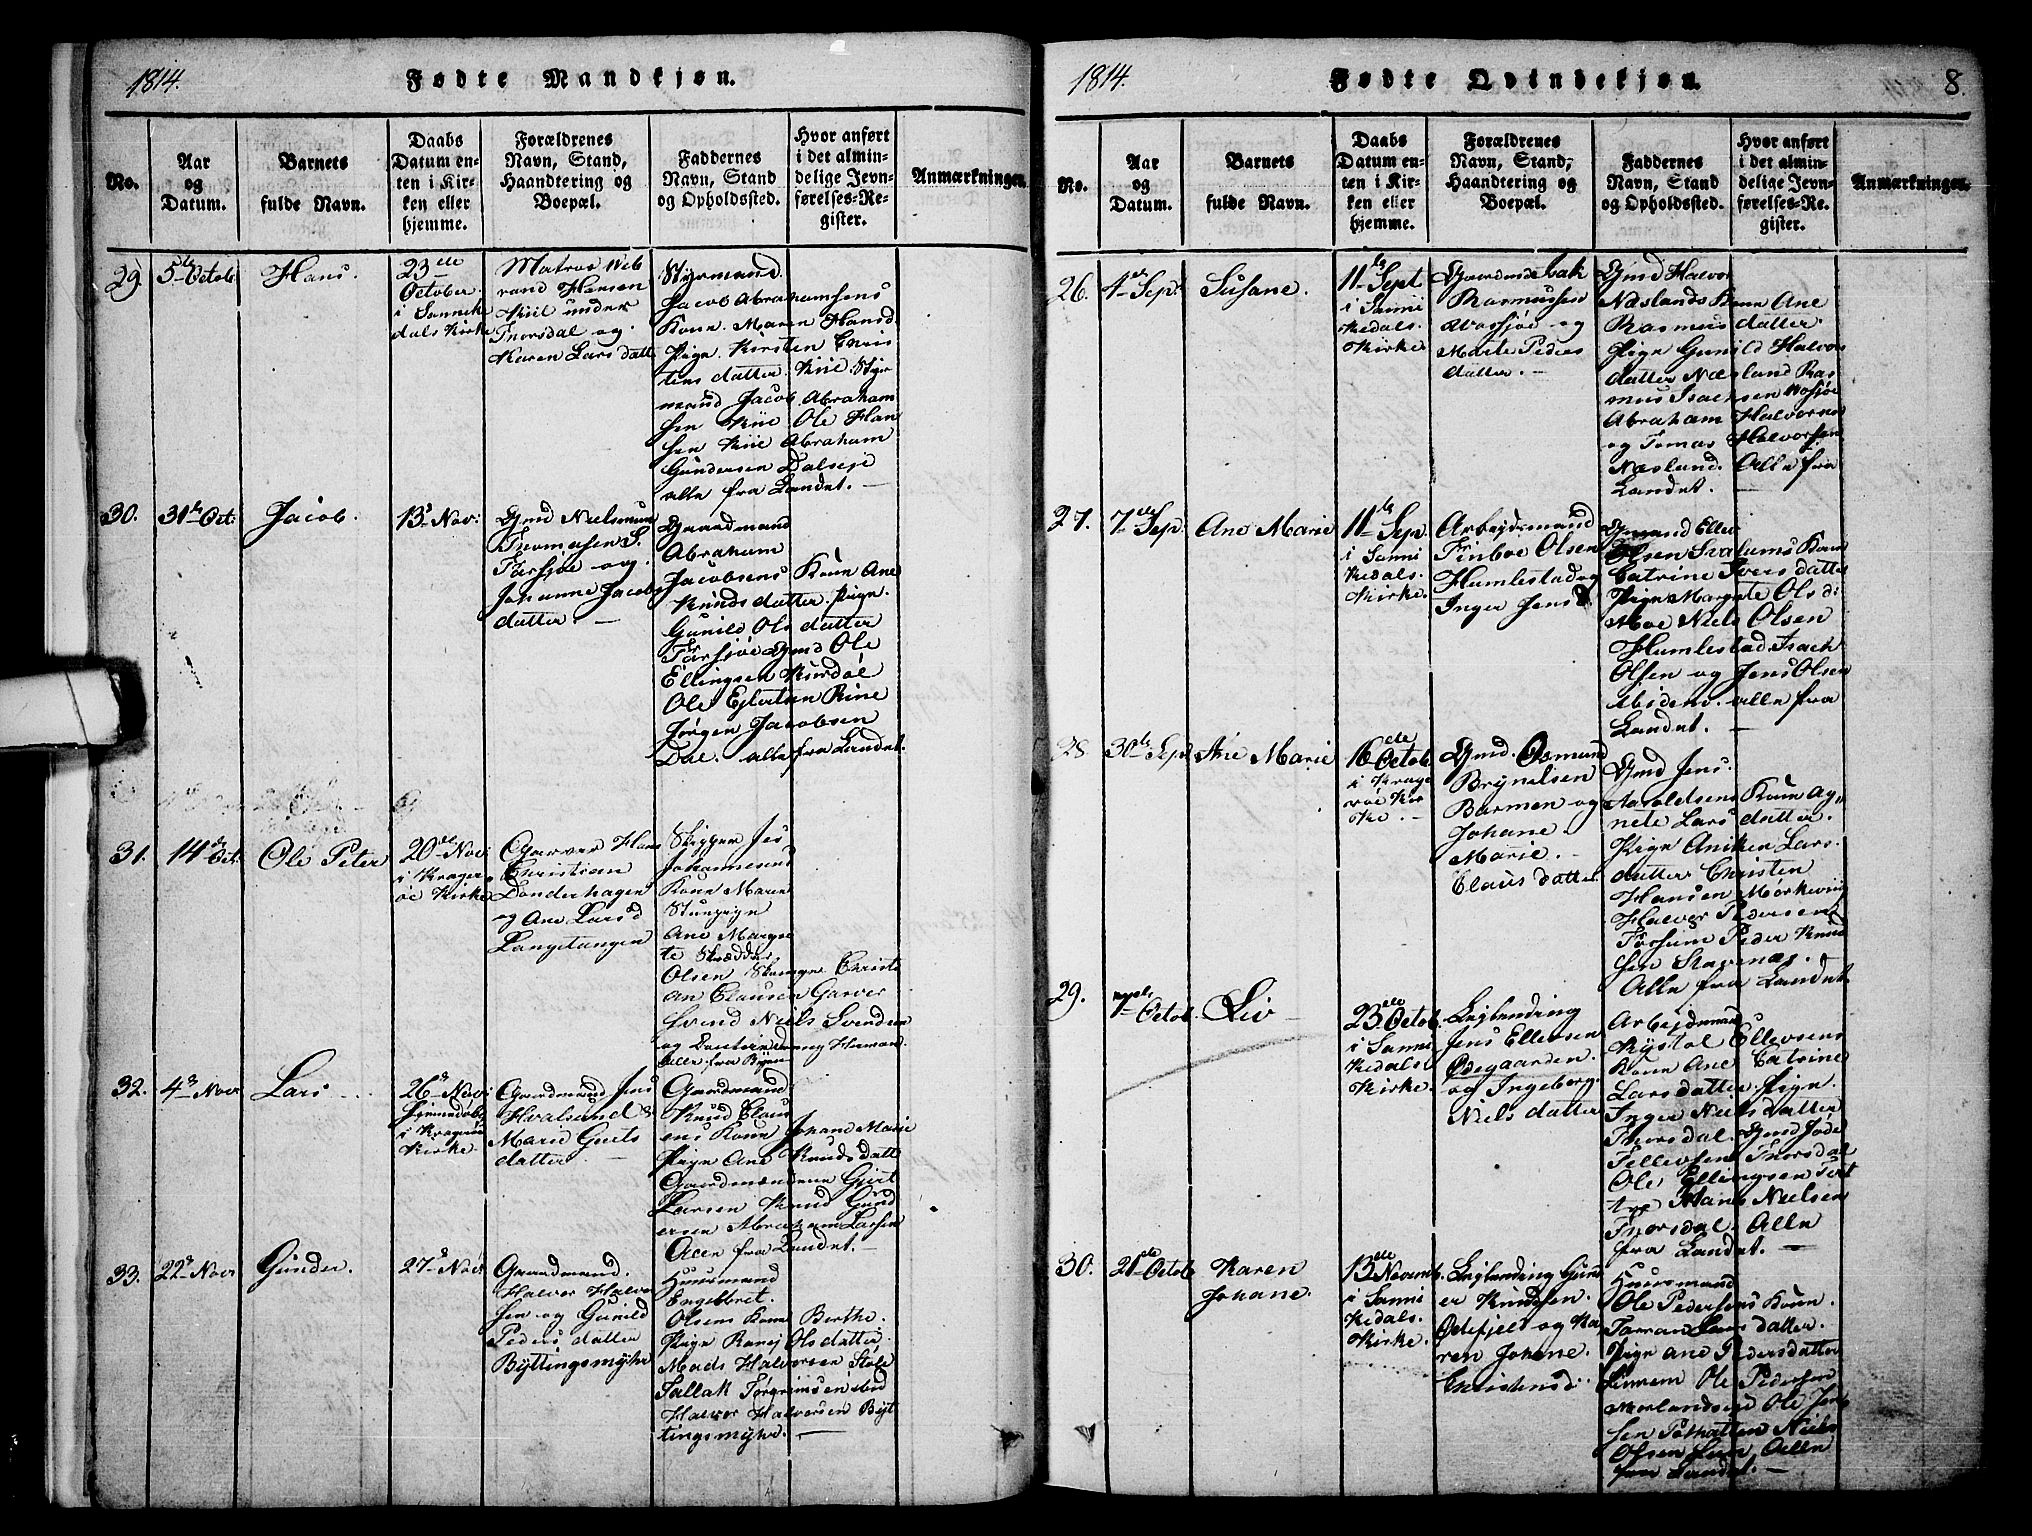 1814.
Fødte Mandkjøn.
No.
Aar
og
Datum.
Barnets
fulde Navn.
Daabs
Datum en-
ten i Kir-
ken eller
hjemme.
Forældrenes
Navn, Stand,
Haandtering og
Boepæl.
Faddernes
Navn, Stand
og Opholdssted.
Hvor anført
i det almin-
delige Jevn-
førelses-Re-
gister.
Anmærkninger.
29.
5te Octob.
Hans.
23de
October
i Sannike
dals Kirke
Matros Web
rand Hansen
Kiil under
Thorsdal og
Karen Lars datt.
Styrmand
Jacob Abrahamsens
Kone. Maren Hansd
Pign. Kirsten Chris
tens datter. Kiie. Styr
mand Jacob Abraham
sen Kiie Ole Han
sen Kiie Abraham
Gundersen Dalseje
alle fra Landet.
30.
31te Oct:
Jacob.
13d Nov:
Gmd Niels
Thomesen
Farsjøe og
Johanne Jacobs
datter.
Gaardmand
Abraham
Jacobsens Kone Ane
Knuds datter. Pign.
Gunild Ols datter
Farsjøe Gmd Ole
Ellingsen Kurdøl
Ole Ejlertsen Rine
Jørgen Jacobsen
Dal. alle fra Landet.
31.
14d Oct.
Ole Peter
20de Nov:
i Krager
øe Kirke
Garver Hans
Christian
Donderhagen
og Ane Larsd
Langetangen
Skipper Jes
Johannesens
Kone Maren
Stunpign
Ane Margre
te Skrædder
Olsen Christi
an Clausen Garver
Svend Niels Svendsen
og
Alle fra Byen
32.
4d Novr
Lars
26d Nov:
i Kragerøe
Kirke
Gaardmand Jens
Hvalsund &
Maren Guets
datter.
Gaardmand
Knud Claus
ens Kone Johane Marie
Pign Ane Knuds datt
Gaardmændene Gjert
Larsen Knud Gund
ersen Abraham Larsen
Alle fra Landet.
33.
22d Novr
Gunder.
27d Nov:
Gaardmand.
Halver Halver
sen og Gunild
Peders datter
Byttingsmyhr
Huusmand
Engebbret.
Olsens Kone Berthe.
Pign Ranej Ols datter.
Mads Halversen Støle
Tallak Torgrimsen ibid
Halver Halversen Byt
tingsmyhr.
1814.
Fødte Qvindekjøn.
8.
No.
Aar
og
Datum.
Barnets
fulde Navn.
Daabs
Datum en-
ten i Kir-
ken eller
hjemme.
Forældrenes
Navn, Stand,
Haandtering og
Boepæl.
Faddernes
Navn, Stand
og Opholdssted.
Hvor anført
i det almin-
delige Jevn-
førelses-Re-
gister.
Anmærkninger.
26.
4de Sep.
Susane.
11te Sept
i Sanni
kedals
Kirke
Gaardmd Isak
Rasmussen
Wasjøe og
Marte Peders
datter.
Gmd Halvor
Næslands Kone Ane
Rasmus datter.
Pign Gunild Halvors
datter Næsland Ras
mus Isachsen Wasjøe
Abraham Halvorsen
og Tomas Halvorsen
Næsland. Alle fra
Landet.
27.
7de Sep.
Ane Marie
11te Sep.
i Sanni
kedals.
Kirke.
Arbejdsmand
Finboe Olsen
Humlestad og
Inger Jensd
Gmand Ellev
Olsen Svalums Kone
Catrine Ivers datter
Pign Margrete Olsd:
Moe Niels Olsen
Humlestad. Isach
Olsen og Jens Olsen
ibidem. alle fra
Landet.
28
30te Sep.
Ane Marie
16de Octob.
i Krage
røe Kir
ke.
Gmd. Osmund
Brynelsen
Barmen og
Johane
Marie.
Claus datter
Gmd Jens.
Aaroldsens Kone Ag-
nete Lars datter.
Pign Aniken Lars.
datter Christen
Hansen Mørkevig
Halver Pedersen
Forsum Peder Knud
sen Stavenæs.
Alle fra Landet
29.
7de Octob.
Liv
23de Octob.
i Sanni
kedals
Kirke.
Lejlending
Jens Ellevsen
Ødegaarden.
og Ingeborg.
Niels datter
Arbejdsmand
Kystol Ellevsens
Kone Ane Catrine
Lars datter. Pign.
Inger Niels datter
Thorsdal. Gmd Jøde
Tellevsen Thorsdal
Ole Ellingsen Tvet
Hans Nielsen
Thorsdal. Alle
fra Landet.
30.
21de Octob
Karen
Johane.
13de Novemb.
i Sanni
kedals.
Kirke.
Lejlending Gund
er Knudsen.
Ødefjeld og Ka
ren Johane.
Christensd.
Huusmand
Ole Pedersens Kone.
Torran Lars datter.
Pign Ane Pedersdatter
Linnem Ole Pedersen
Morlandseje Ole Jens
sen Pothatten Niels
Olsen Alle
fra Landet.